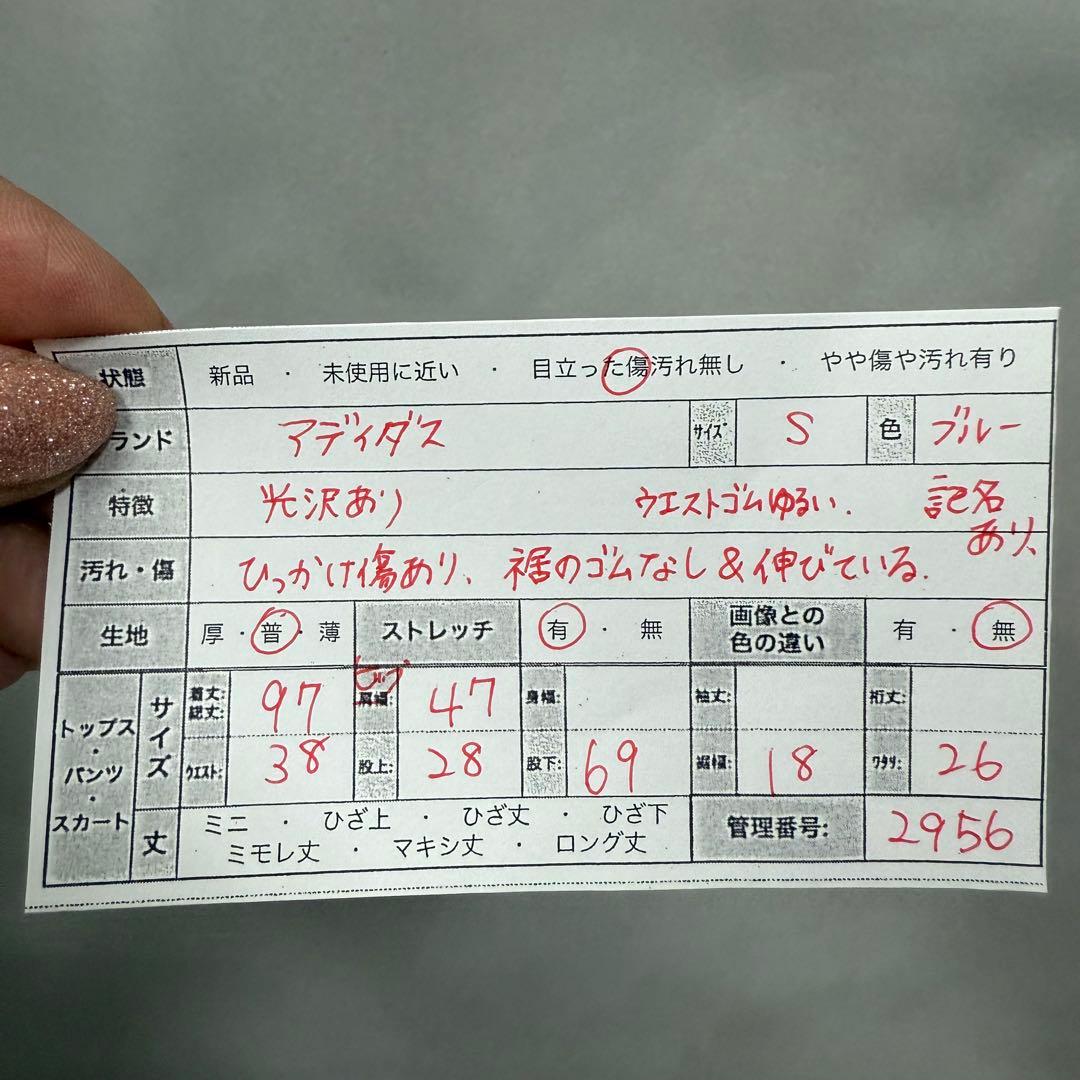 状態 新品 ・ 未使用に近い ・ 目立った傷汚れ無し ・ やや傷や汚れ有り
ランド アディダス サイズ S 色 ブルー
特徴 光沢あり ウエストゴムゆるい. 記名あり、
汚れ・傷 ひっかけ傷あり、裾のゴムなし&伸びている.
生地 厚・普・薄 ストレッチ 有 ・ 無 画像との色の違い 有 ・ 無
トップス・パンツ・スカート サイズ 着丈:総丈: 97 ヒップ 肩幅: 47 身幅: 袖丈: 裄丈:
ウエスト: 38 股上: 28 股下: 69 裾幅: 18 ワタリ: 26
丈 ミニ ・ ひざ上 ・ ひざ丈 ・ ひざ下
ミモレ丈 ・ マキシ丈 ・ ロング丈
管理番号: 2956